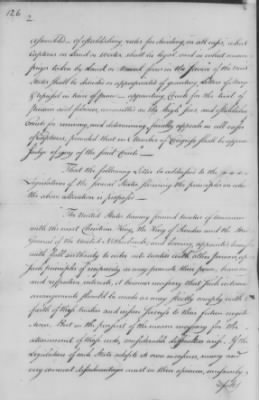 126
2
assembled — of establishing rules for deciding in all cases, what
Captures on Land or Water shall be legal, and in what manner
prizes taken by Land or Naval forces in the Service of the United
States shall be divided or appropriated of granting Letters of Marque
& reprisal in times of peace — appointing Courts for the trial of
piracies and felonies, committed on the high Seas, and establishing
Courts for receiving, and determining, finally appeals in all cases
of Captures, provided that no Member of Congress shall be appointed
Judge of any of the said Courts —
That the following Letter be addressed to the
Legislatures of the several States shewing the principles on which
the above alteration is proposed —
The United States having formed treaties of Commerce
with the most Christian King, the King of Sweden and the States
General of the United Netherlands, and having appointed
with full authority to enter into treaties with other powers, upon
such principles of reciprocity as may promote their peace, harmony
and respective interests, it becomes necessary that such internal
arrangements should be made as may strictly comply with the
faith of those treaties and ensure success to their future negotia-
tions. But in the pursuit of the means necessary for the
attainment of these ends, considerable difficulties arise. If the
Legislature of each State adopts its own measures, many and
very eminent disadvantages must in their opinion, necessarily